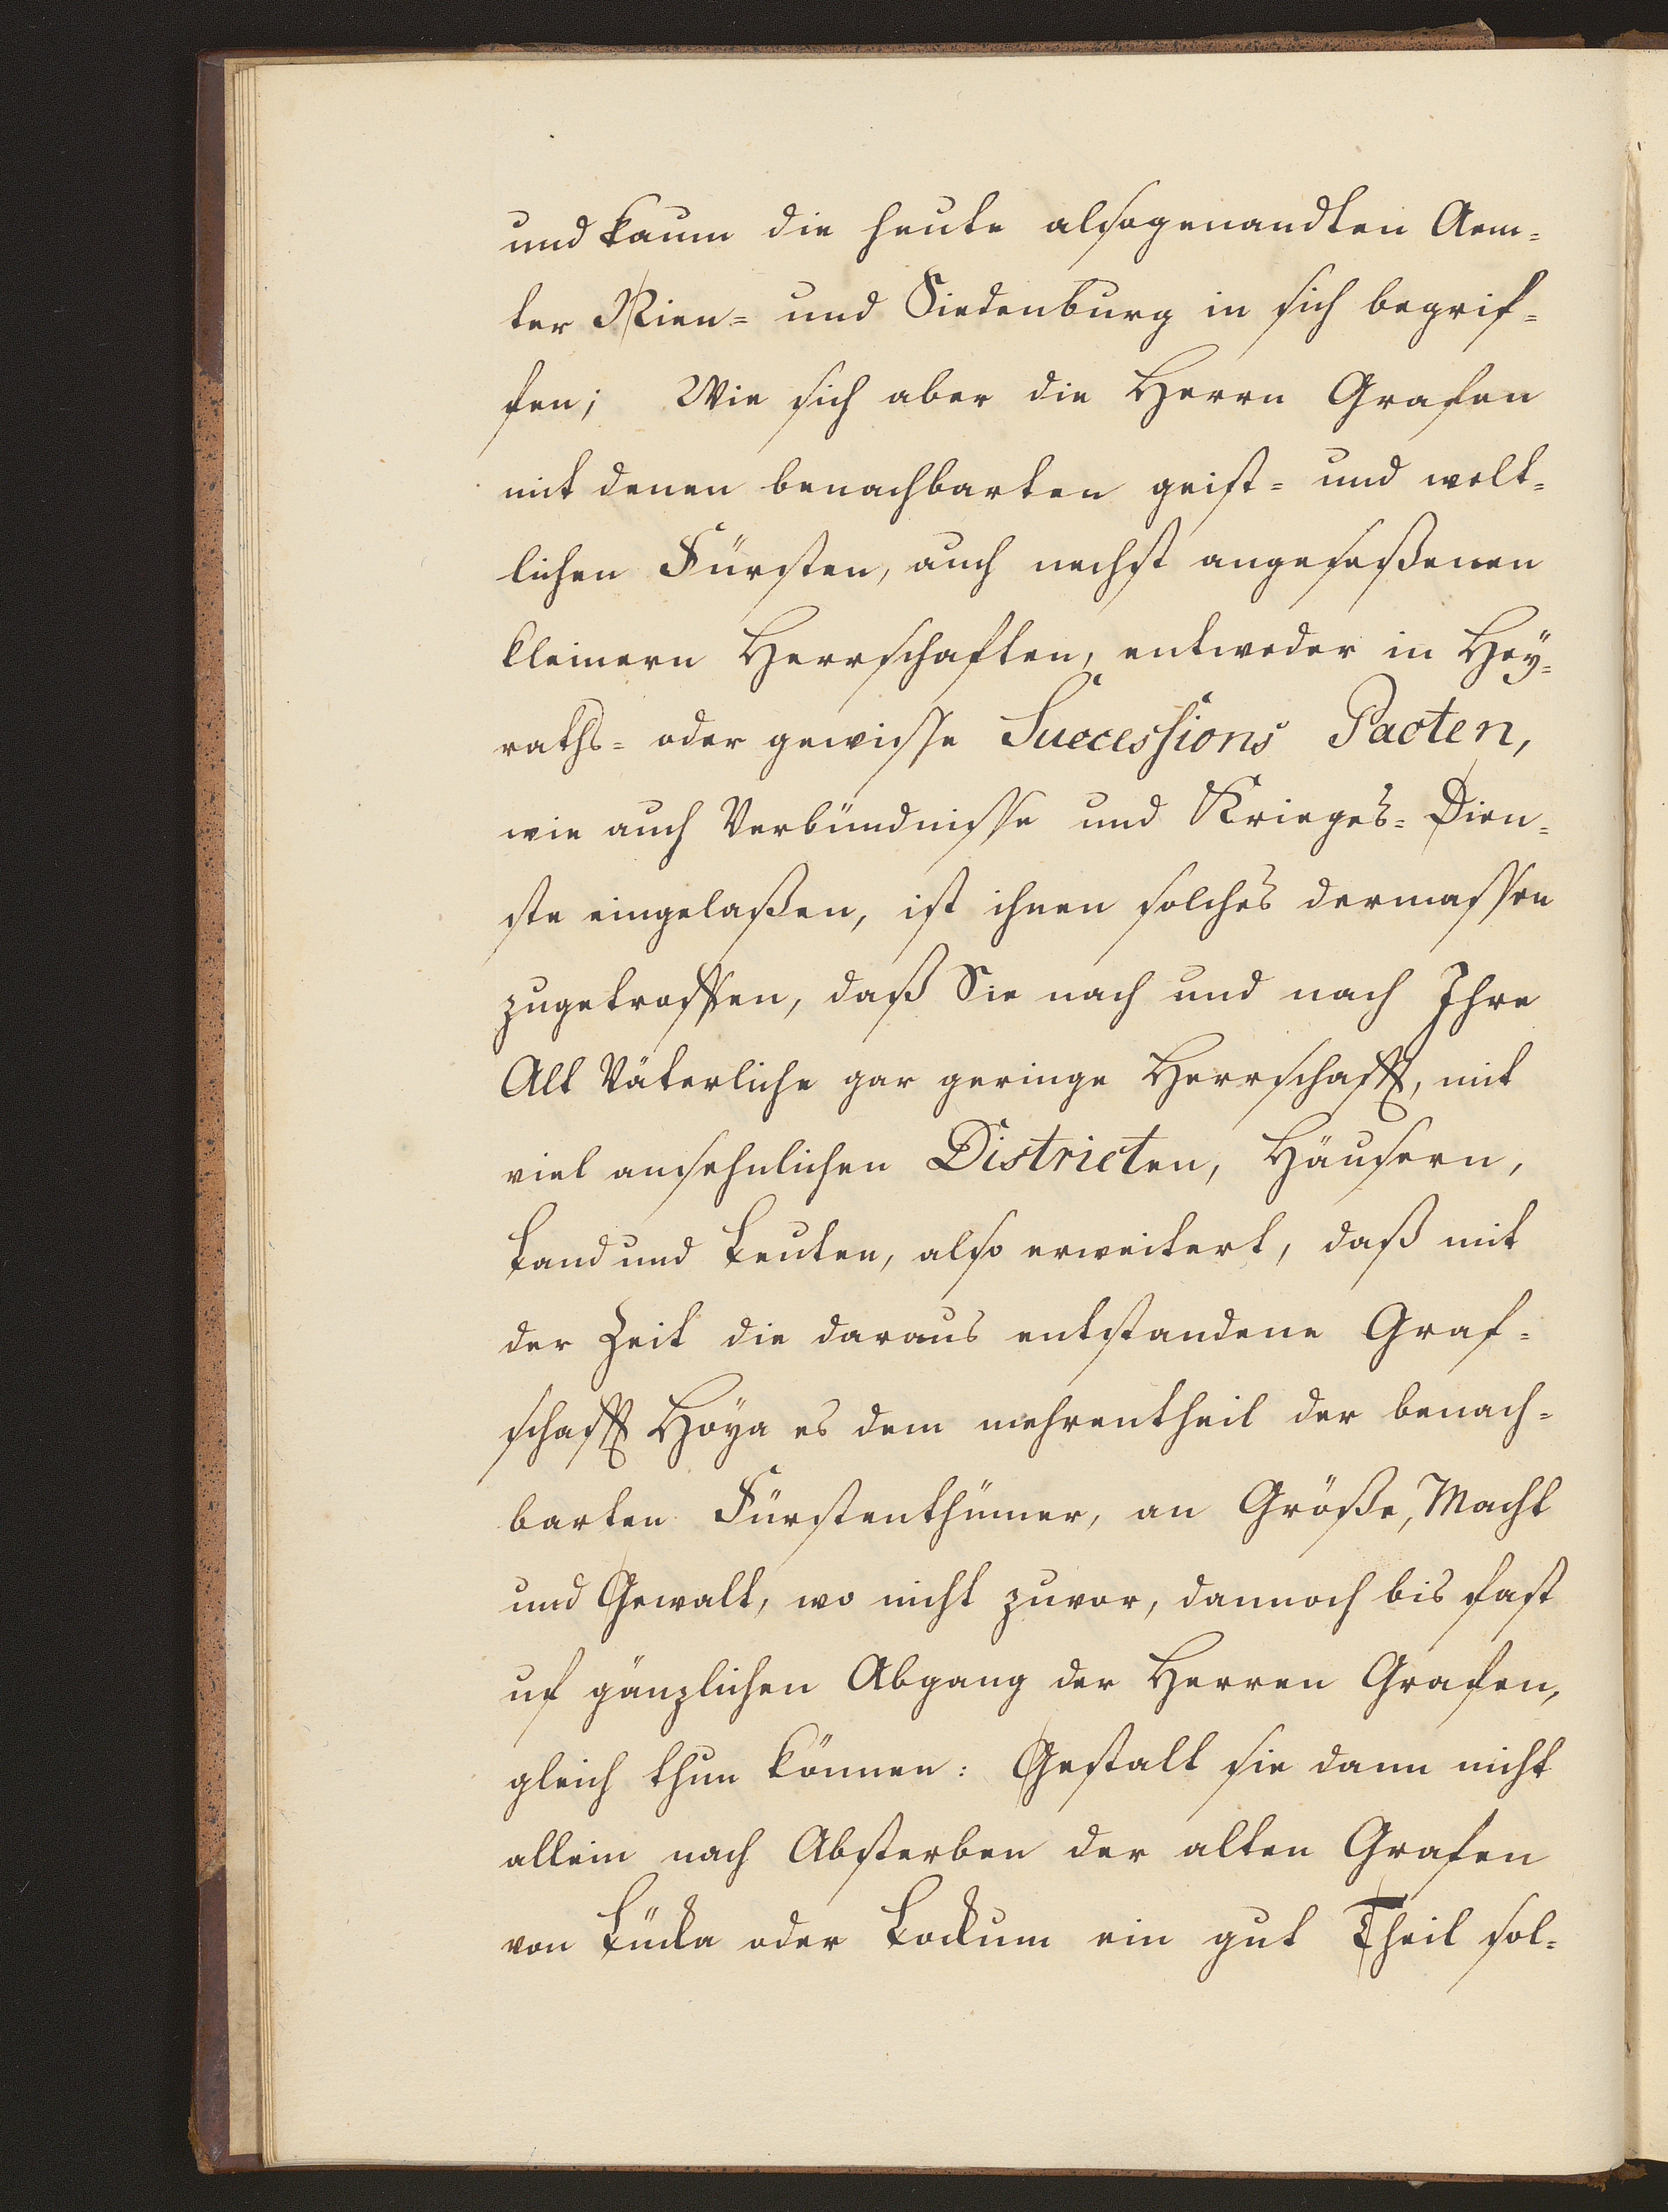 und kaum die heute alsogenandten Aem=
ter Nien= und Siedenburg in sich begrif=
fen; Wie sich aber die Herrn Grafen
mit denen benachbarten geist= und welt=
lichen Fürsten, auch nechst angeseßenen
kleinern Herrschaften, entweder in Hey=
raths= oder gewisse Successions Pacten,
wie auch Verbündnisse und Krieges= Dien=
ste eingelaßen, ist ihnen solches dermassen
zugetroffen, daß Sie nach und nach Ihre
Alt Väterliche gar geringe Herrschafft, mit
viel ansehnlichen Districten, Häusern,
Land und Leuten, also erweitert, daß mit
der Zeit die daraus entstandene Graf=
schafft Hoÿa es dem mehrentheil der benach=
barten Fürstenthümer, an Größe, Macht
und Gewalt, wo nicht zuvor, dannoch bis fast
uf gänzlichen Abgang der Herren Grafen,
gleich thun können: Gestalt sie dann nicht
allein nach Absterben der alten Grafen
von Lücka oder Lockum ein gut Theil sol=